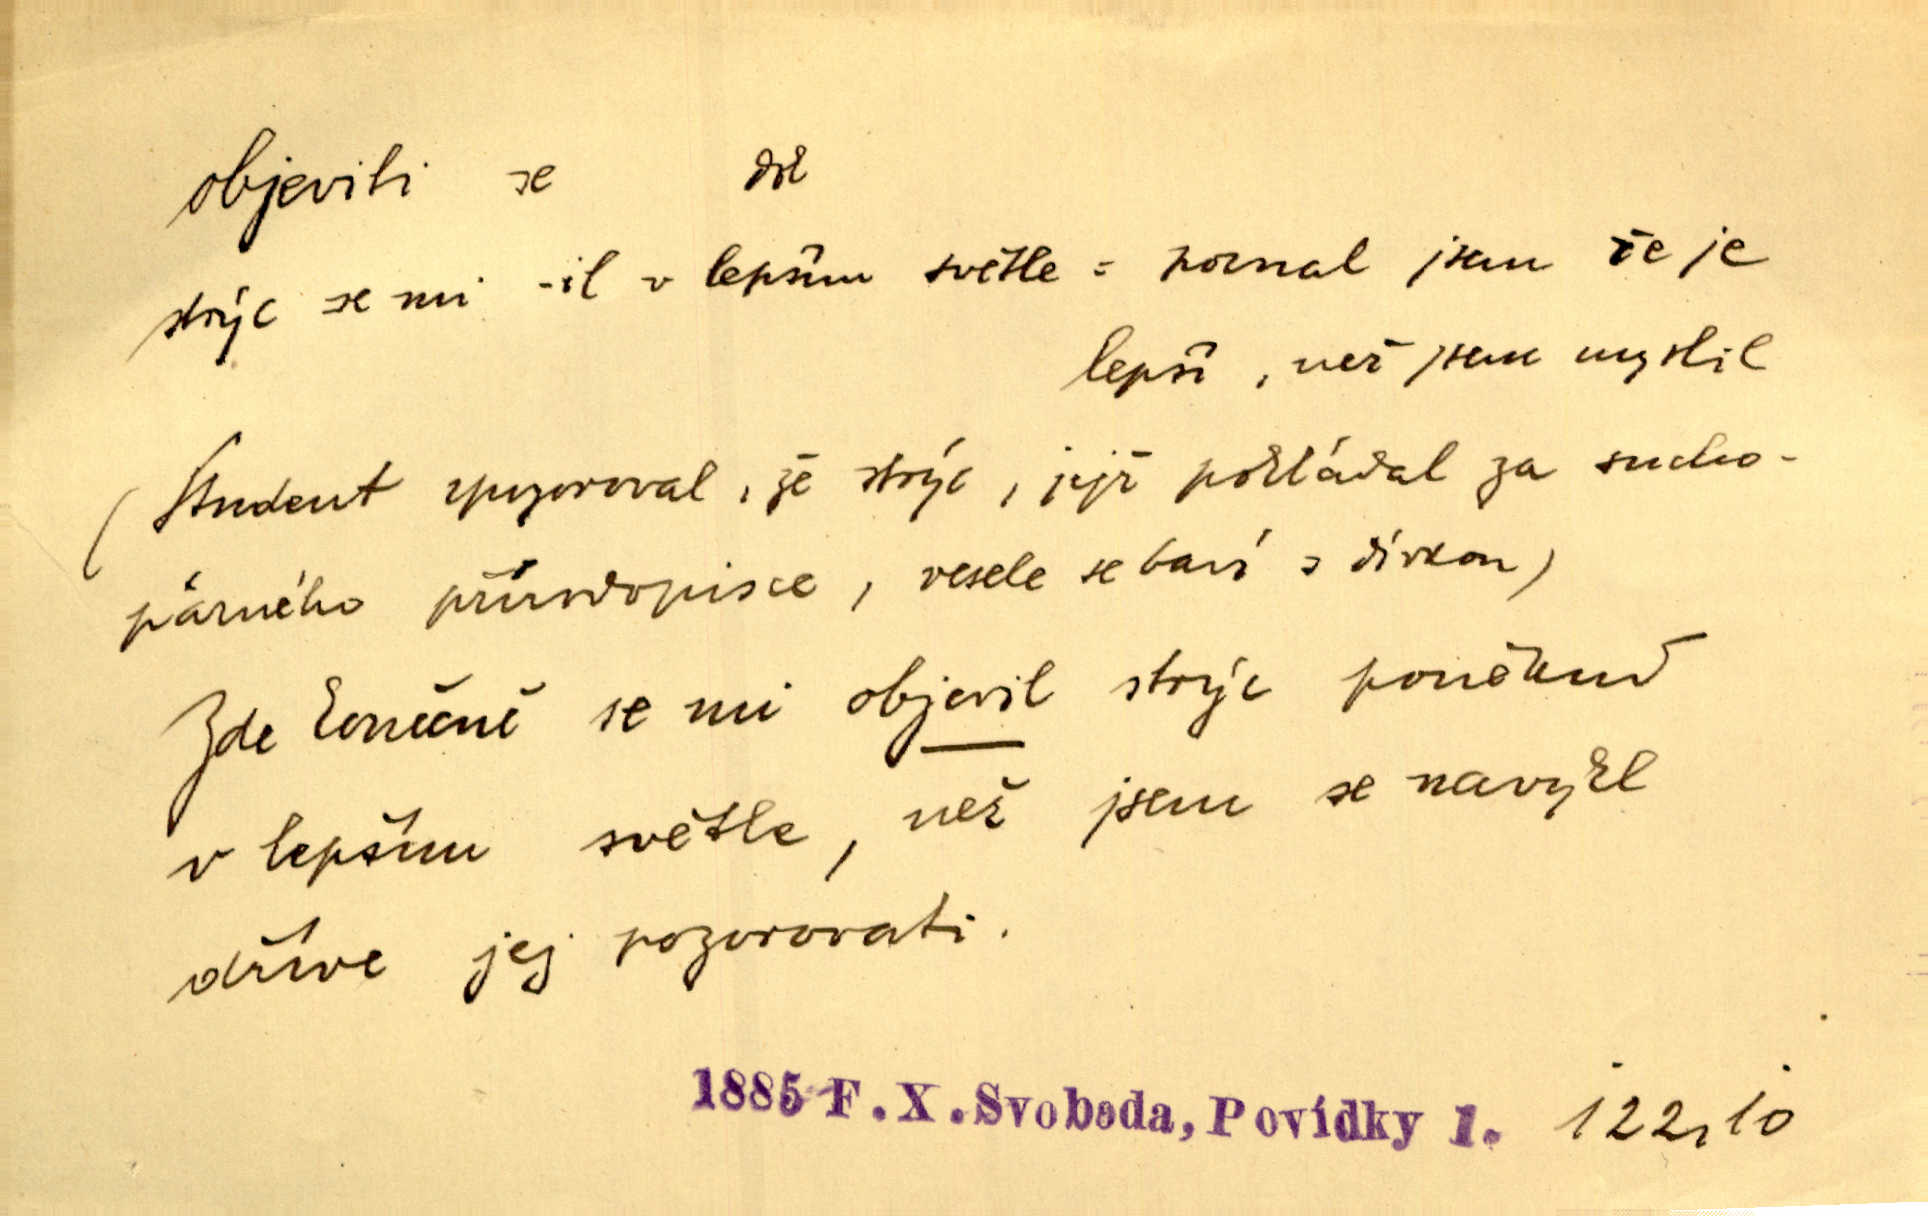 objeviti se dok
strýc se mi -il v lepším světle = poznal jsem že je
lepší, než jsem myslil
(Student zpozoroval, že strýc, jejž pokládal za sucho-
párného přírodopisce, vesele se baví s dívkou)
Zde konečně se mi objevil strýc poněkud
v lepším světle, než jsem se navykl
dříve jej pozorovati.
1885 F.X.Svoboda, Povídky 1. 122,10